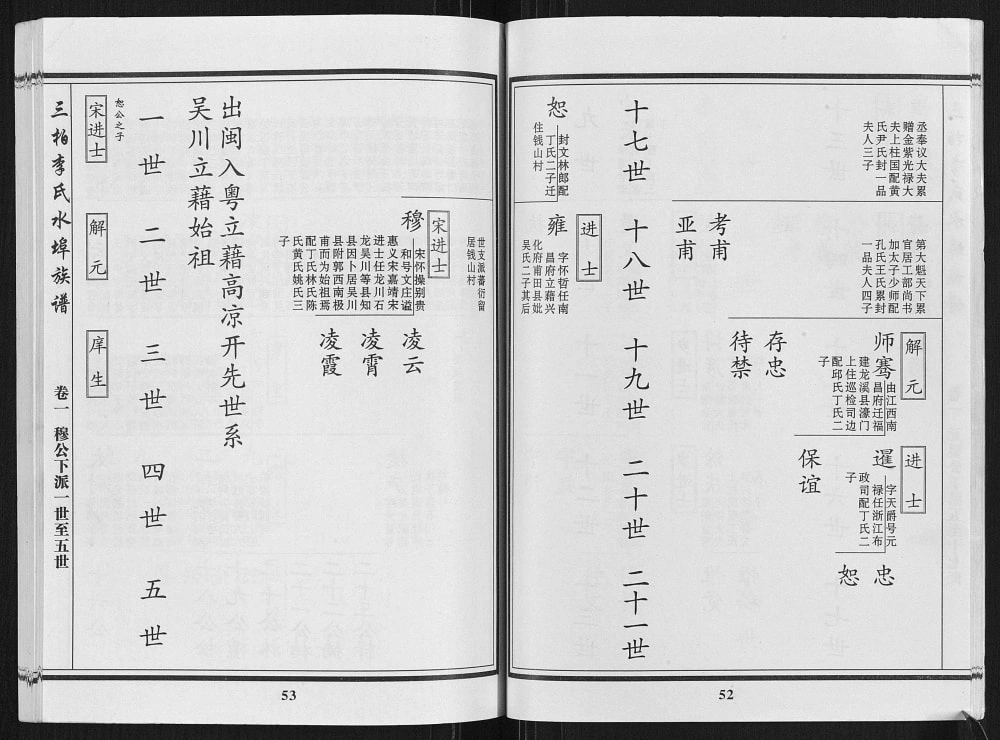 丞奉议大夫累
赠金紫光禄大
夫上柱国配黄
氏尹氏封一品
夫人三子
第大魁天下累
官居工部尚书
加太子少师配
孔氏王氏累封
一品夫人四子
解元
师骞
由江西南
昌府迁福
建龙溪县濠门
上住巡检司边
配邱氏丁氏二
子
进士
暹
字天爵号元
禄任浙江布
政司配丁氏二
子
忠
恕
保谊
考甫
亚甫
存忠
待禁
十七世
十八世
十九世
二十世
二十一世
恕
封文林郎配
丁氏二子迁
住钱山村
进士
雍
字怀哲任南
昌府立藉兴
化府甫田县妣
吴氏二子其后
52
世支派蕃衍留
居钱山村
宋进士
穆
宋怀操别贵
和号文庄谥
惠义宋嘉靖宋
进士任龙川石
龙吴川等县知
县因卜居吴川
县附郭西南极
甫而为始祖焉
配丁氏林氏陈
氏黄氏姚氏三
子
凌云
凌霄
凌霞
出闽入粤立藉高凉开先世系
吴川立藉始祖
一世
二世
三世
四世
五世
恕公之子
宋进士
解元
庠生
三柏李氏水埠族谱
卷一
穆公下派一世至五世
53